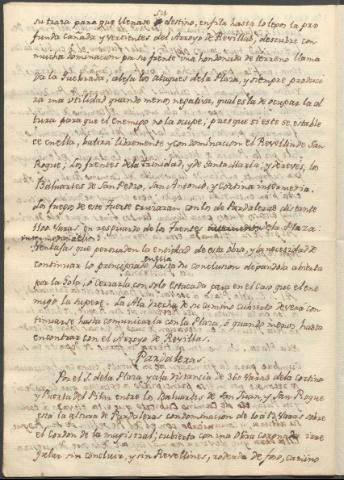 su
su traza para que llenase destino, enfila hasta lo lejos la pro
funda Cañada y vertientes del Arroyo de Revillas, descubre con
mucha dominacion por su frente una hondonada de terreno llama
da la Quebrada, aleja los ataques de la Plaza, y siempre produci
ra una utilidad quando menos negativa, qual es la de ocupar la al
tura para que el enemigo no la ocupe; pues que si este se estable
ce en ella, batira libremente y con dominacion el Revellin de San
Roque; los frentes de la Trinidad, y de Santa Maria; y de reves, los
Baluartes de San Pedro, San Antonio, y Cortina intermedia.
Los fuegos de este fuerte cruzaran con los de Pardaleras distante
1100 Varas en resguardo de los frentes de la Plaza
intermedios
Ventajas que persuaden la entidad de esta obra, y la necesidad de
continuar lo principiado hasta su conclusion dejandola abierta
por la Gola, o cerrarla con solo estacada para en el caso que el ene
migo la supere. La Ala derecha de su camino cubierto devera con
tinuarse hasta comunicarla con la Plaza, o quando menos, hasta
encontrar con el Arroyo de Revillas.
Pardaleras.
Por el S. de la Plaza y a la distancia de 360 Varas de la Cortina
y Puerta del Pilar entre los Baluartes de San Juan, y San Roque
esta la altura de Pardaleras con dominacion de 12 Varas sobre
el Cordon de la magistral; cubierto con una Obra coronada irre
gular sin concluir, y sin Revellines, rodeada de foso, camino